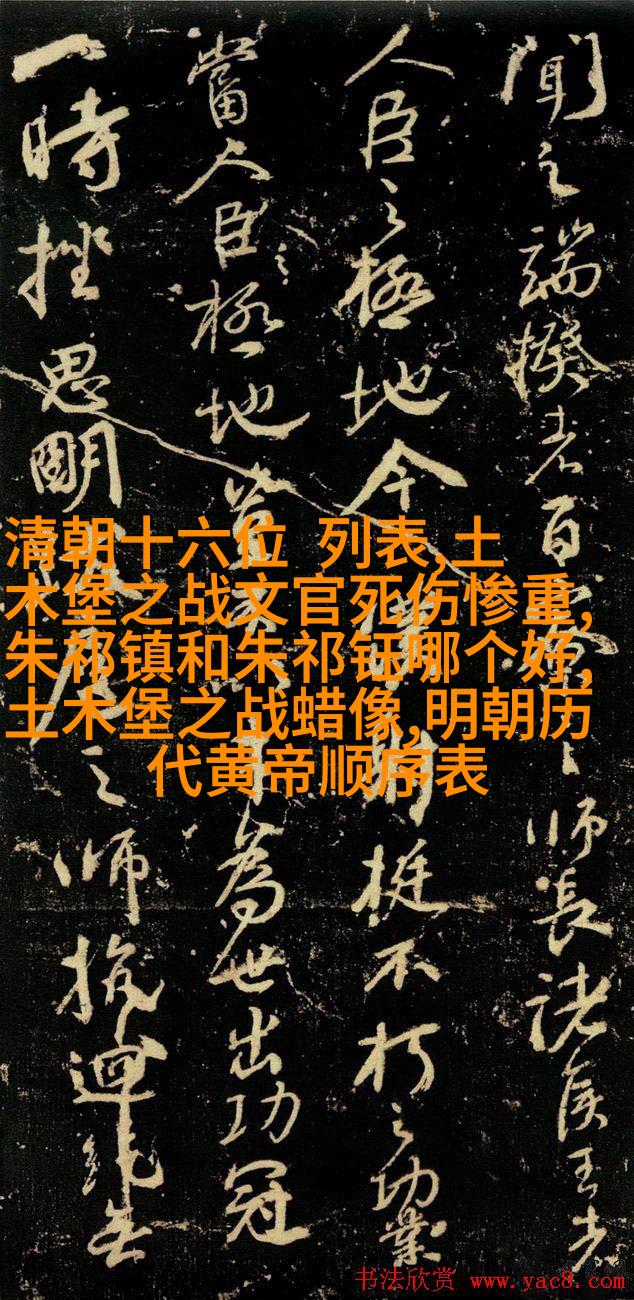 聞之端揆者百之師長諸侯王者
人臣之極地今挺不朽之功業
當人臣之極地豈為世出功冠
一時挫思明之師抗迴紇無
清朝十六位 列表,土
木堡之战文官死伤惨重,
朱祁镇和朱祁钰哪个好,
土木堡之战蜡像,明朝历
代黄帝顺序表
书法欣赏 www.yac8.com